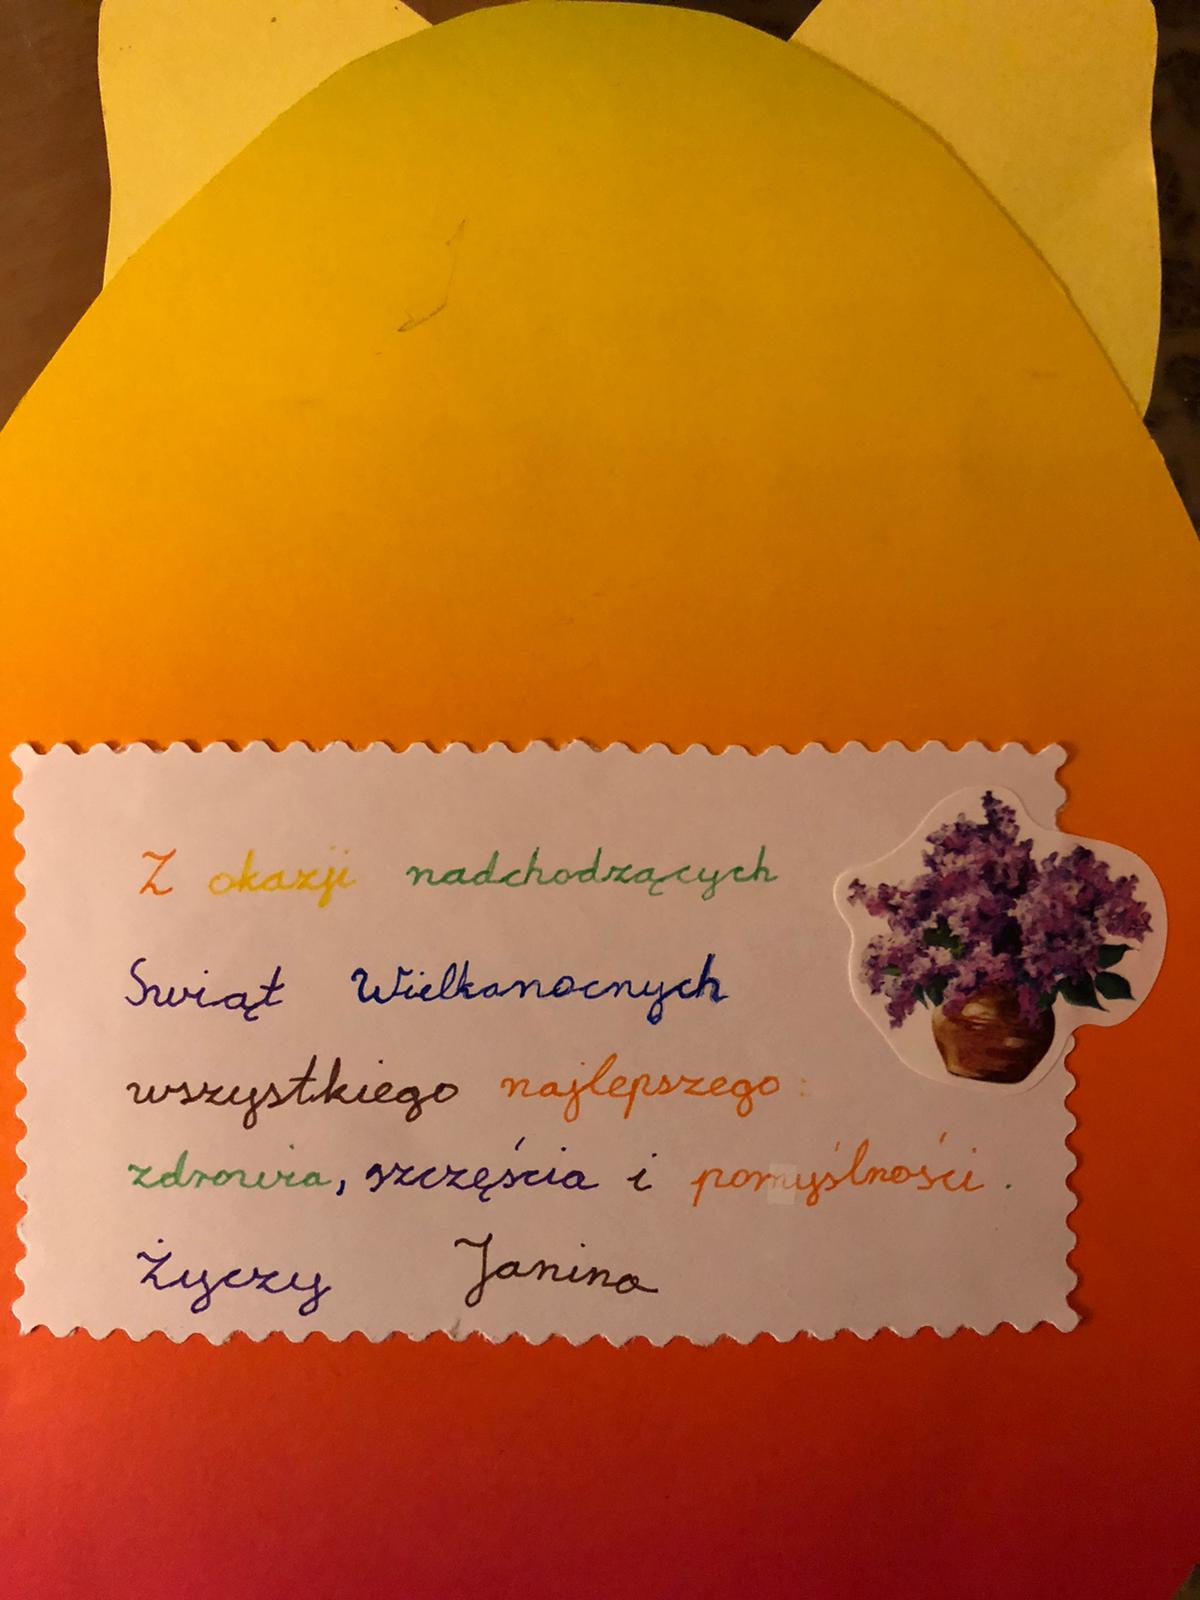 Z okazji nadchodzących
Swiąt Wielkanocnych
wszystkiego najlepszego:
zdrowia, szczęścia i pomyślności.
Życzy Janina